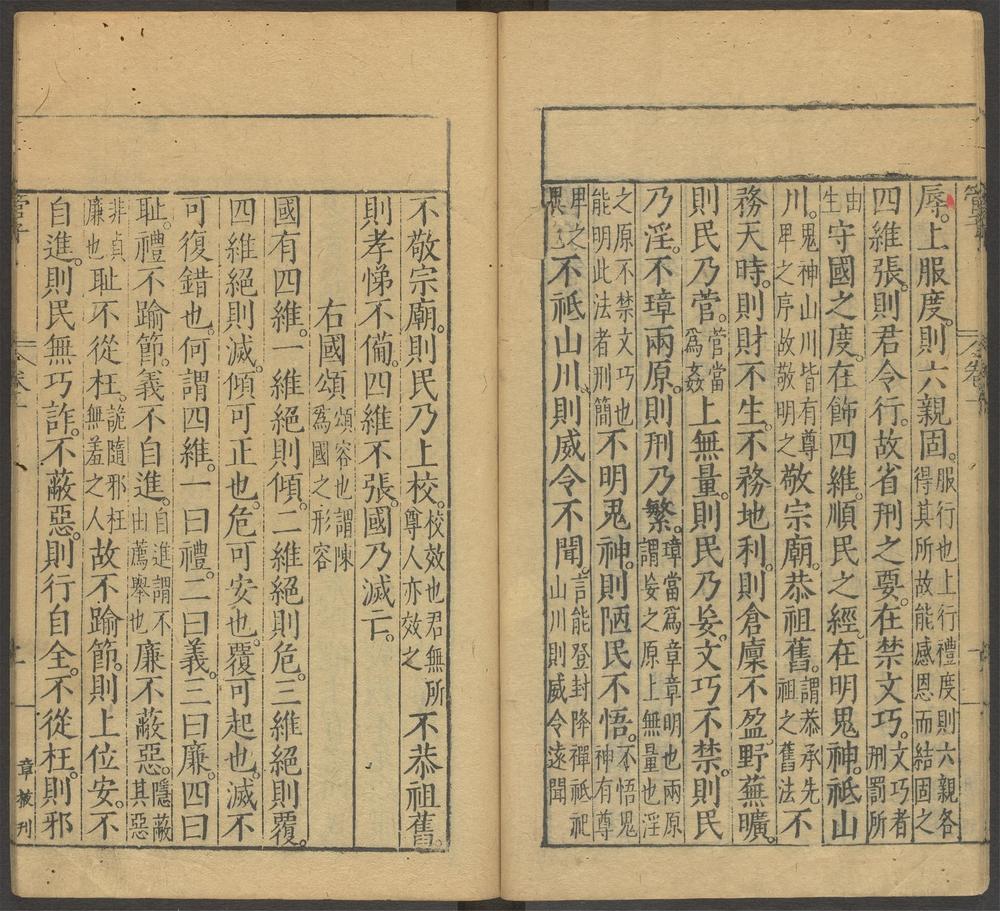 辱。上服度。則六親固。服行也上行禮度則六親各得其所故能感恩而結固之
四維張。則君令行。故省刑之要。在禁文巧。文巧者刑罰所
由生守國之度。在飾四維。順民之經。在明鬼神。祗山
川。鬼神山川皆有尊卑之序故敬明之敬宗廟。恭祖舊。謂恭承先祖之舊法不
務天時。則財不生。不務地利。則倉廩不盈。野蕪曠。
則民乃菅。菅當為姦上無量。則民乃妄。文巧不禁。則民
乃淫。不璋兩原。則刑乃繁。璋當為章章明也兩原謂妄之原上無量也淫
之原不禁文巧也能明此法者刑簡不明鬼神。則陋民不悟。不悟鬼神有尊
卑之異也不祗山川。則威令不聞。言能登封降禪祗祀山川則威令遠聞
不敬宗廟。則民乃上校。校效也君無所尊人亦效之不恭祖舊。
則孝悌不備。四維不張。國乃滅亡。
右國頌頌容也謂陳為國之形容
國有四維。一維絕則傾。二維絕則危。三維絕則覆。
四維絕則滅。傾可正也。危可安也。覆可起也。滅不
可復錯也。何謂四維。一曰禮。二曰義。三曰廉。四曰
恥。禮不踰節。義不自進。自進謂不由薦舉也廉不蔽惡。隱蔽其惡
非貞廉也恥不從枉。詭隨邪枉無羞之人故不踰節。則上位安。不
自進。則民無巧詐。不蔽惡。則行自全。不從枉。則邪
章掖刊